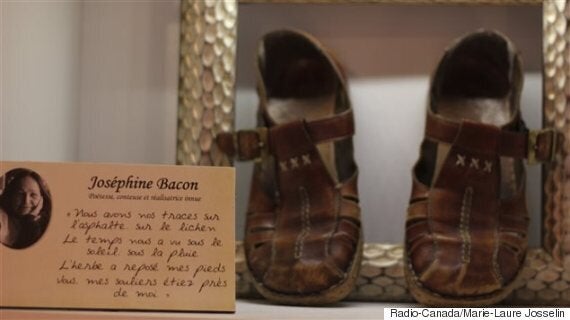 Joséphine Bacon
Poétesse, conteuse et réalisatrice innue
« Nous avons nos traces sur
l'asphalte sur le lichen
Le temps nous a vu sous le
soleil sous la pluie
L'herbe a reposé mes pieds
Vous, mes souliers étiez près
de moi »
Radio-Canada/Marie-Laure Josselin